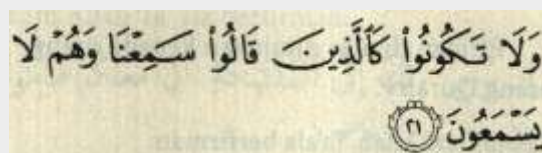 وَلَا تَكُونُوا۟ كَٱلَّذِينَ قَالُوا۟ سَمِعْنَا وَهُمْ لَا
يَسْمَعُونَ ٢١